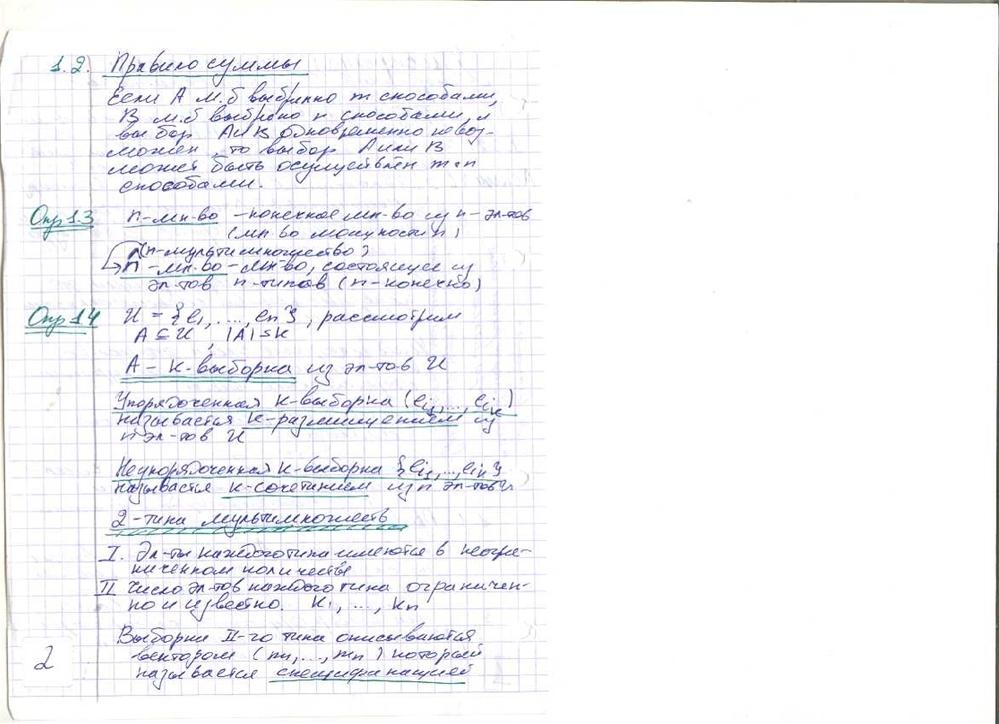 1.2. Правило суммы
Если А м.б выбрано m способами,
В м.б выбрано n способами, и
выбор А и В одновременно невоз-
можен, то выбор А или В
может быть осуществлён m+n
способами.
Опр 1.3 n-мн-во - конечное мн-во из n-эл-тов
(мн-во мощности n)
(n-мультимножество)
n-мн-во - мн-во, состоящее из
эл-тов n-типов (n-конечно)
Опр 1.4 U = {e₁, ..., en}, рассмотрим
A ⊆ U, |A| = k
А - к-выборка из эл-тов U
Упорядоченная к-выборка (ei₁, ..., eik)
называется к-размещением из
n эл-тов U
Неупорядоченная к-выборка {ei₁, ..., eik}
называется к-сочетанием из n эл-тов U
2-типа мультимножеств
I. Эл-ты каждого типа имеются в неогра-
ниченном количестве
II Число эл-тов каждого типа ограничен-
но и известно. k₁, ..., kn
Выборки II-го типа описываются
вектором (m₁, ..., mn) который
называется спецификацией
2